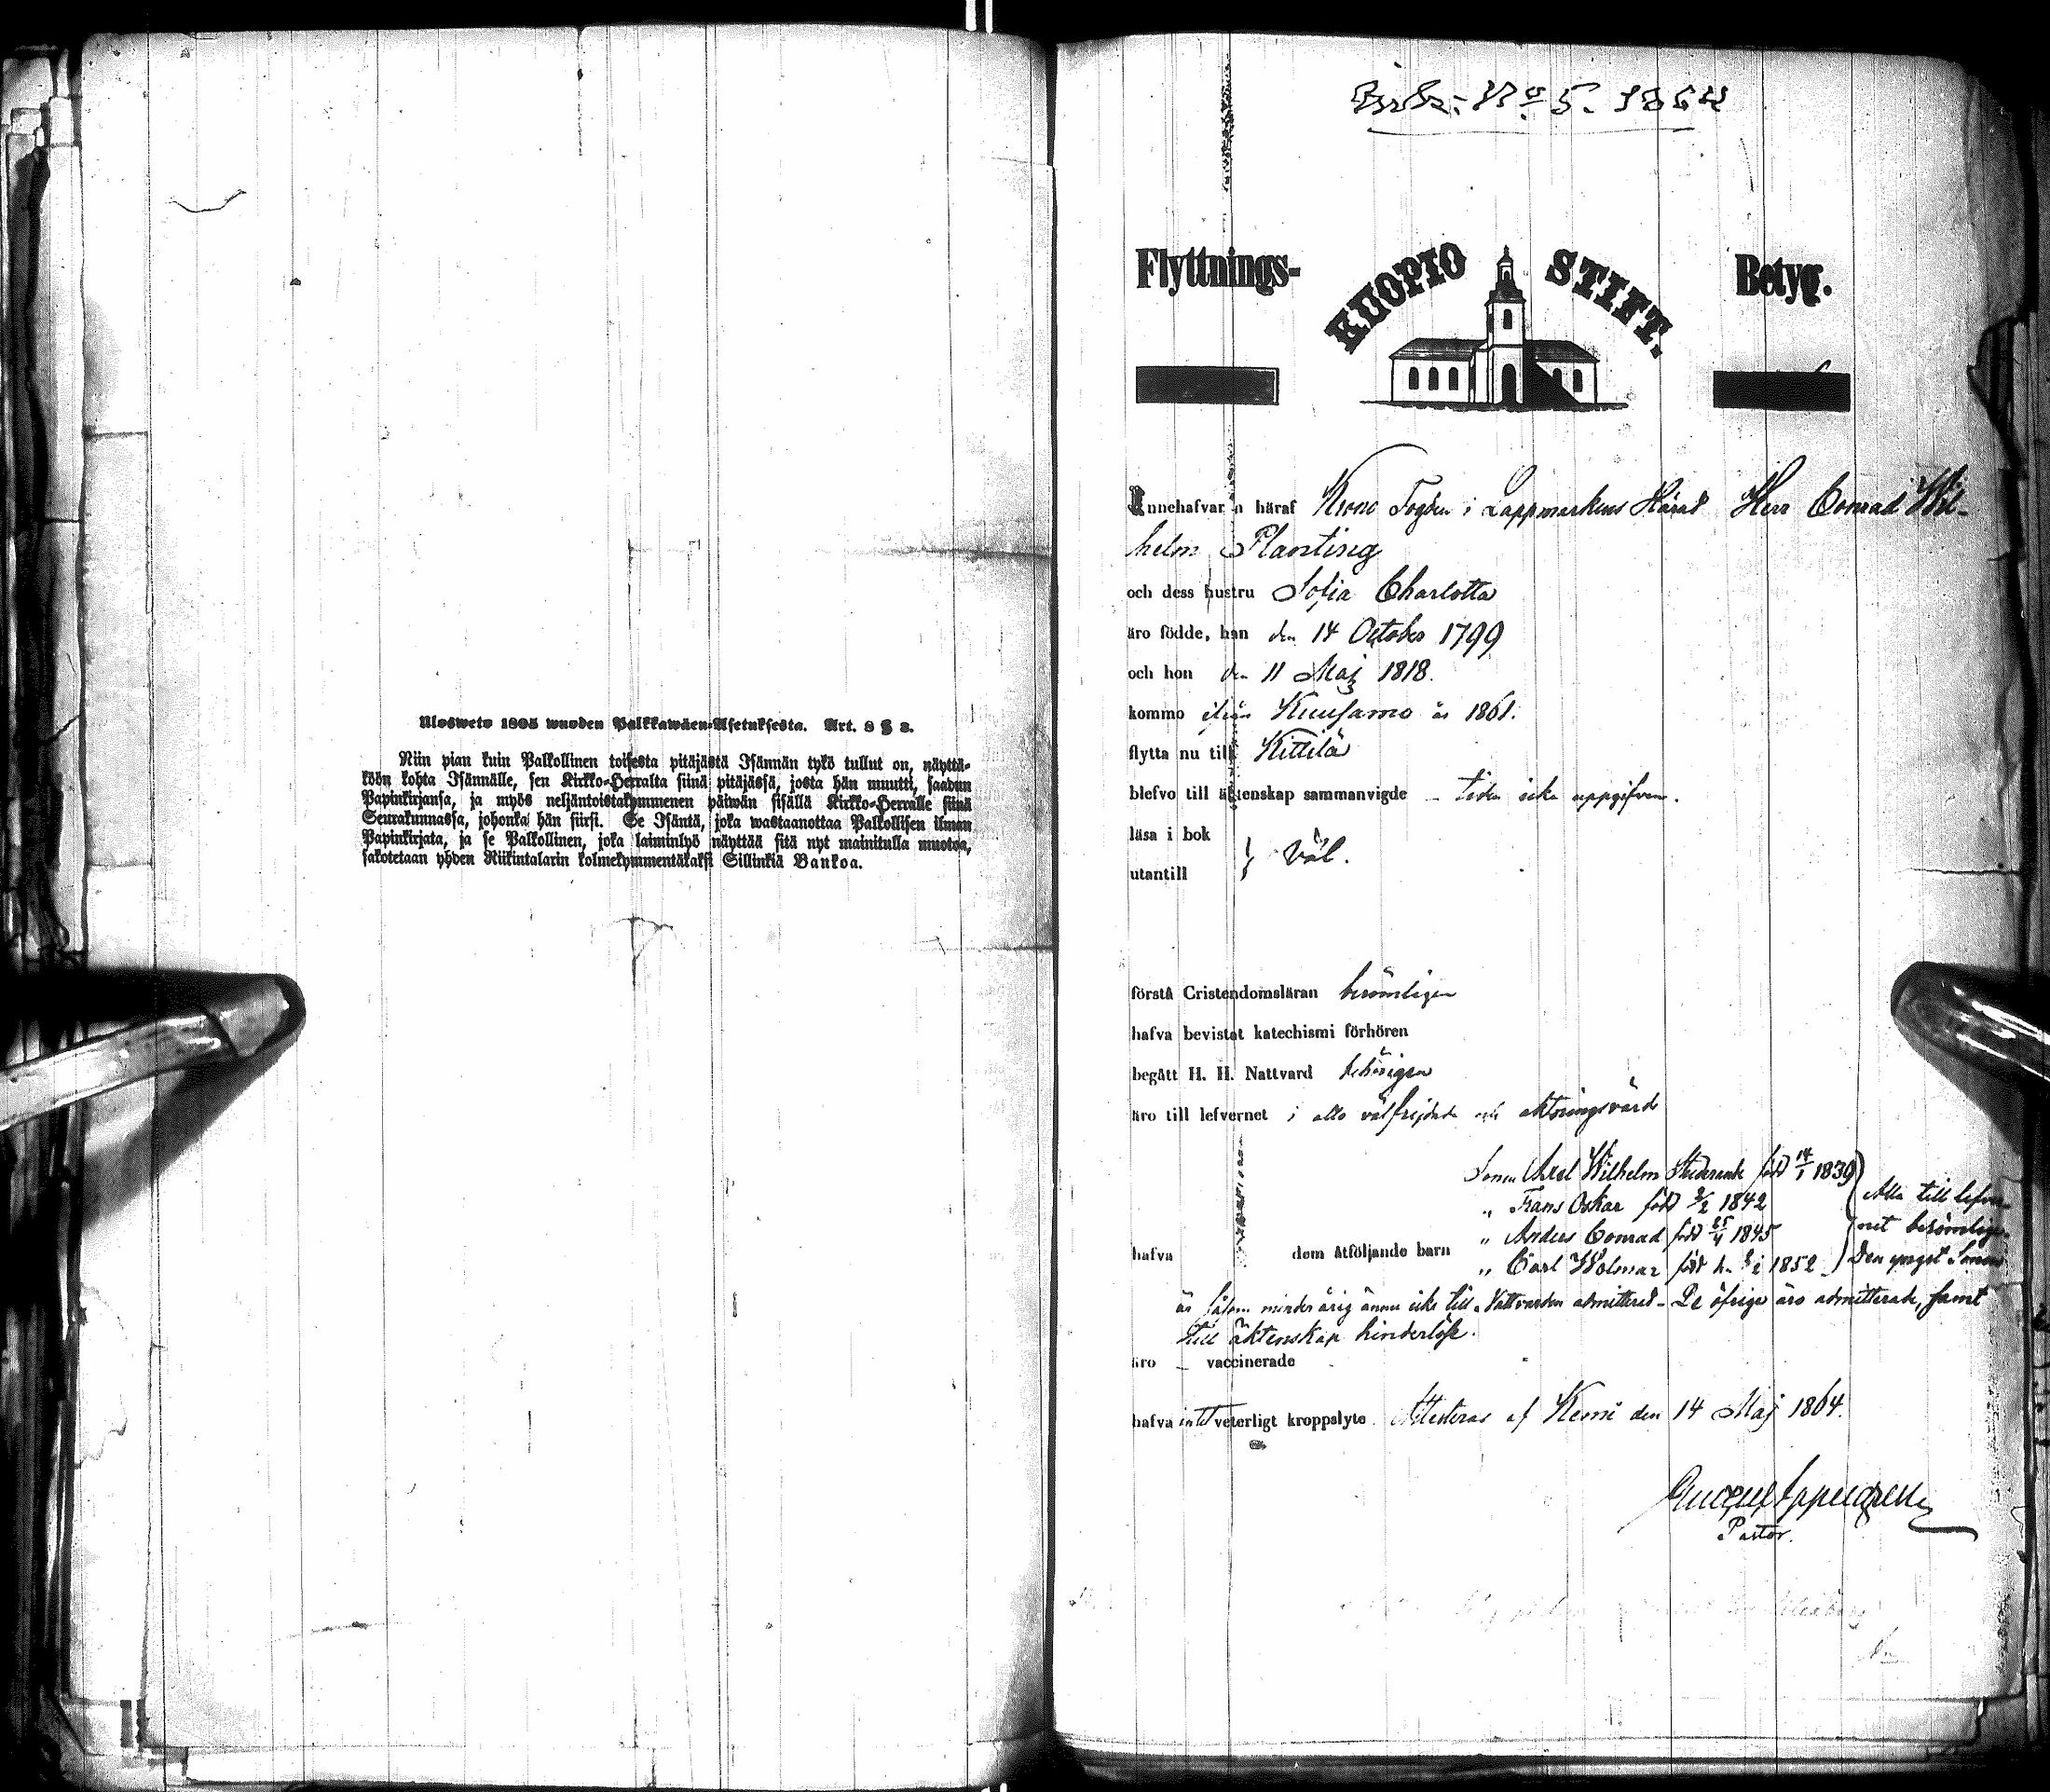 Ulosweto 1805 wuoden Palkkawäen-Asetuksesta. Art. 8 § 3.
Niin pian kuin Palkollinen toisesta pitäjästä Isännän tykö tullut on, näyttä-
köön kohta Isännälle, sen Kirkko-Herralta siinä pitäjässä, josta hän muutti, saadun
Papinkirjansa, ja myös neljäntoistakymmenen päiwän sisällä Kirkko-Herralle siinä
Seurakunnassa, johonka hän siirsi. Se Isäntä, joka wastaanottaa Palkollisen ilman
Papinkirjata, ja se Palkollinen, joka laiminlyö näyttää sitä nyt mainitulla muotoa,
sakotetaan yhden Riikintalarin kolmekymmentäkaksi Sillinkiä Bankoa.
No 5. 1864
Flyttnings- KUOPIO STIFT. Betyg.
Innehafvarn häraf Krono Fogden i Lappmarkens Härad Herr Conrad Wil-
helm Planting
och dess hustru Sofia Charlotta
äro födde, han den 14 October 1799
och hon den 11 Maj 1818.
kommo ifrån Kuusamo år 1861.
flytta nu till Kittilä
blefvo till äktenskap sammanvigde - tiden icke uppgifven.
läsa i bok
} väl.
utantill
förstå Cristendomsläran berömligen
hafva bevistat katechismi förhören
begått H. H. Nattvard behörigen
äro till lefvernet i allo välfrejdade och aktningsvärde
Sonen Axel Wilhelm Studerande född 14/1 1839
" Frans Oskar född 2/2 1842 Alla till lefver-
" Anders Conrad född 25/4 1845 net berömlige.
hafva dem åtföljande barn " Carl Wolmar född 1852 Den yngst Sonen
är såsom minderårig ännu icke till Nattvarden admitterad - De öfrige äro admitterade, samt
till äktenskap hinderlöse.
äro - vaccinerade
hafva intet veterligt kroppslyte. Attesteras af Kemi den 14 Maj 1864.
Pastor.